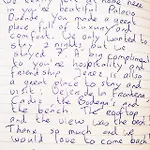 We really felt at home here
in you're beautiful Palacio
Duende. You made a great
place full of luxury and
comfort. We only wanted to
stay 2 nights but we
stayed 4. A big compliment
to you're hospitality and
friendship. Jerez is also
a great place to stay and
visit. Vejer de la Frontera
Cadiz the Bodega's and
the beach. The rooftop
and the view was the best
Thank so much and we
would love to come back!